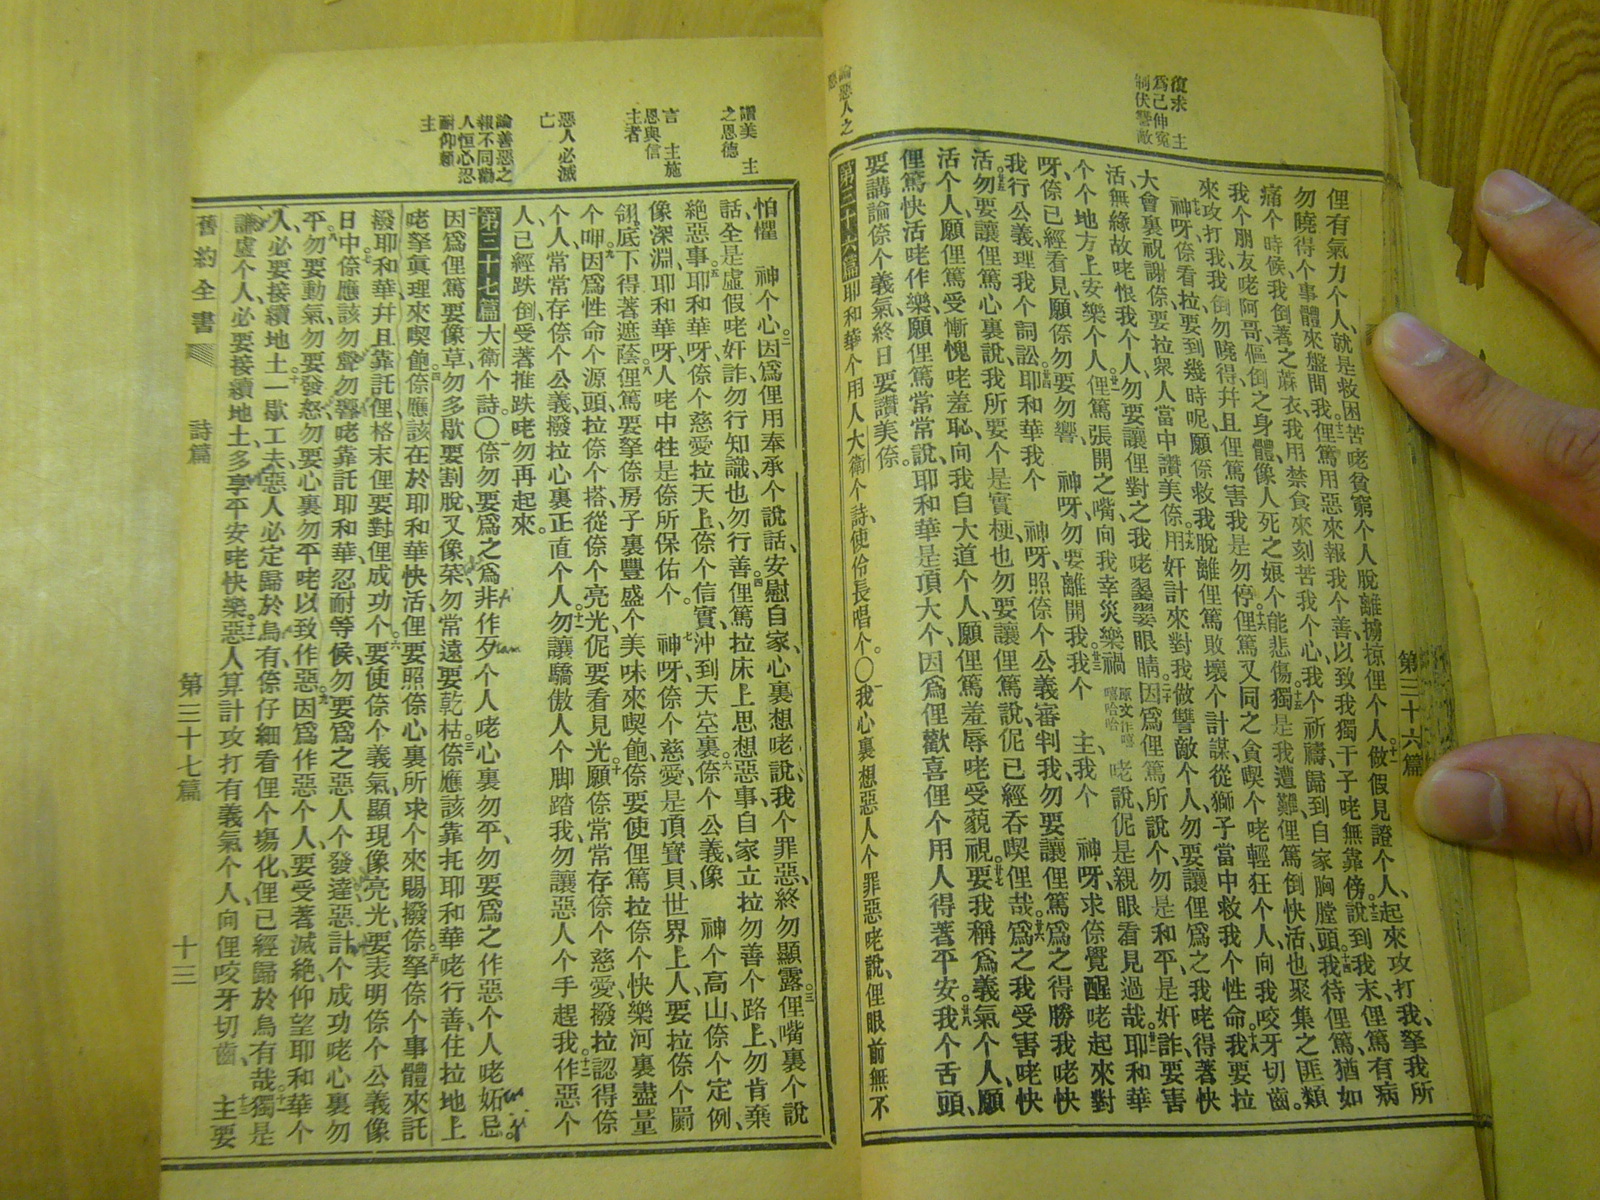 復求　主
為己伸寃
制伏讐敵
論惡人之
第三十六篇
俚有氣力个人、就是救困苦咾貧窮个人脫離擄掠俚个人。十一做假見證个人、起來攻打我、拏我所
勿曉得个事體來盤問我。十二俚篤用惡來報我个善、以致我獨干子咾無靠傍。十三說到我末、俚篤有病
痛个時候、我倒著之蔴衣、我用禁食來刻苦我个心、我个祈禱歸到自家胸膛頭。十四我待俚篤、猶如
我个朋友咾阿哥、傴倒之身體、像人死之娘个能悲傷。十五獨是我遭難、俚篤倒快活、也聚集之匪類
來攻打我、我倒勿曉得、幷且俚篤害我、是勿停。十六俚篤又同之貪喫个咾輕狂个人、向我咬牙切齒。
十七神呀、倷看拉要到幾時呢、願倷救我脫離俚篤敗壞个計謀、從獅子當中救我个性命。十八我要拉
大會裏祝謝倷、要拉衆人當中讚美倷。十九用奸計來對我做讐敵个人、勿要讓俚爲之我咾得著快
活、無緣故咾恨我个人、勿要讓俚對之我咾翣翣眼睛。二十因爲俚篤所說个、勿是和平、是奸詐、要害
个个地方上安樂个人。廿一俚篤張開之嘴、向我幸災樂禍、原文作嘻嘻哈哈咾說、伲是親眼看見過哉。廿二耶和華
呀、倷已經看見、願倷勿要勿響、　神呀、勿要離開我。廿三我个　主、我个　神呀、求倷覺醒咾起來、對
我行公義、理我个詞訟。廿四耶和華我个　神呀、照倷个公義審判我、勿要讓俚篤爲之得勝我咾快
活。廿五勿要讓俚篤心裏說、我所要个是實梗、也勿要讓俚篤說、伲已經吞喫俚哉。廿六爲之我受害咾快
活个人、願俚篤受慚愧咾羞恥、向我自大道个人、願俚篤羞辱咾受藐視。廿七要我稱爲義氣个人、願
俚篤快活咾作樂、願俚篤常常說、耶和華是頂大个、因爲俚歡喜俚个用人得著平安。廿八我个舌頭、
要講論倷个義氣、終日要讚美倷。
第三十六篇耶和華个用人大衛个詩、使伶長唱个。〇一我心裏想惡人个罪惡咾說、俚眼前無不
讚美　主
之恩德
言　主施
恩與信
主者
惡人必滅
亡
論善惡之
報不同勸
人恒心忍
耐仰賴
主
怕懼　神个心。二因爲俚用奉承个說話、安慰自家、心裏想咾說、我个罪惡、終勿顯露。三俚嘴裏个說
話、全是虛假咾奸詐、勿行知識、也勿行善。四俚篤拉床上思想惡事、自家立拉勿善个路上、勿肯棄
絶惡事。五耶和華呀、倷个慈愛拉天上、倷个信實、沖到天空裏。六倷个公義、像　神个高山、倷个定例、
像深淵、耶和華呀、人咾中牲、是倷所保佑个。七　神呀、倷个慈愛、是頂寶貝、世界上人、要拉倷个翼
翎底下得著遮蔭。八俚篤要拏倷房子裏豐盛个美味來喫飽、倷要使俚篤拉倷个快樂河裏盡量
个呷。九因爲性命个源頭、拉倷个搭、從倷个亮光、伲要看見光。十願倷常常存倷个慈愛、撥拉認得倷
个人、常常存倷个公義、撥拉心裏正直个人。十一勿讓驕傲人个脚踏我、勿讓惡人个手趕我。十二作惡个
人、已經跌倒、受著推跌咾勿再起來。
第三十七篇大衛个詩。〇一倷勿要爲之爲非作歹个人咾心裏勿平、勿要爲之作惡个人咾妬忌。
二因爲俚篤要像草、勿多歇要割脫、又像菜、勿常遠要乾枯。三倷應該靠托耶和華咾行善、住拉地上
咾拏眞理來喫飽。四倷應該在於耶和華快活、俚要照倷心裏所求个來賜撥倷。五拏倷个事體來託
撥耶和華、幷且靠託俚、格末俚要對俚成功个。六要使倷个義氣、顯現像亮光、要表明倷个公義像
日中。七倷應該勿聲勿響咾靠託耶和華、忍耐等候、勿要爲之惡人个發達、惡計个成功咾心裏勿
平。八勿要動氣、勿要發怒、勿要心裏勿平咾以致作惡。九因爲作惡个人、要受著滅絶、仰望耶和華个
人、必要接續地土。十一歇工夫、惡人必定歸於烏有、倷仔細看俚个塲化、俚已經歸於烏有哉。十一獨是
謙虛个人、必要接續地土、多享平安咾快樂。十二惡人算計攻打有義氣个人、向俚咬牙切齒、十三　主要
舊約全書
詩篇
第三十七篇
十三